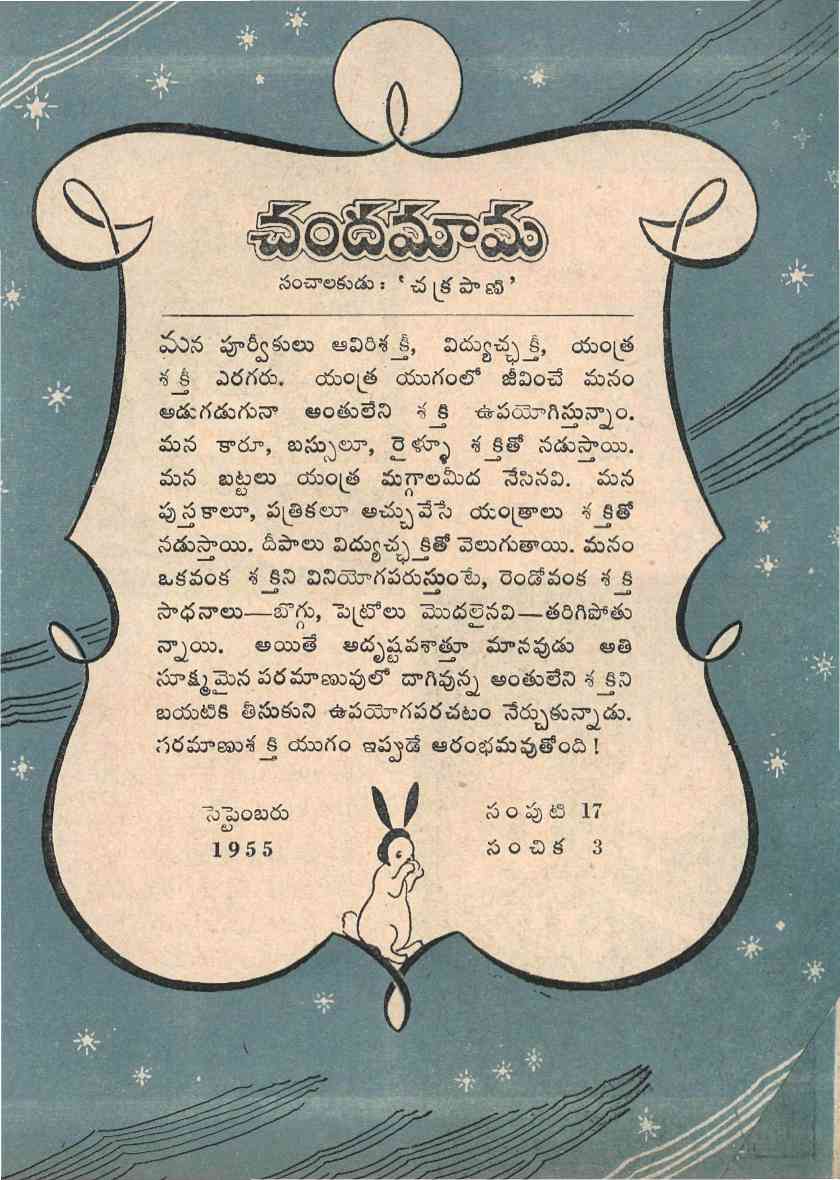 చందమామ
సంచాలకుడు : ‘చక్రపాణి’
మన పూర్వీకులు ఆవిరిశక్తీ, విద్యుచ్ఛక్తీ, యంత్ర
శక్తీ ఎరగరు. యంత్ర యుగంలో జీవించే మనం
అడుగడుగునా అంతులేని శక్తి ఉపయోగిస్తున్నాం.
మన కారూ, బస్సులూ, రైళ్ళూ శక్తితో నడుస్తాయి.
మన బట్టలు యంత్ర మగ్గాలమీద నేసినవి. మన
పుస్తకాలూ, పత్రికలూ అచ్చువేసే యంత్రాలు శక్తితో
నడుస్తాయి. దీపాలు విద్యుచ్ఛక్తితో వెలుగుతాయి. మనం
ఒకవంక శక్తిని వినియోగపరుస్తుంటే, రెండోవంక శక్తి
సాధనాలు—బొగ్గు, పెట్రోలు మొదలైనవి—తరిగిపోతు
న్నాయి. అయితే అదృష్టవశాత్తూ మానవుడు అతి
సూక్ష్మమైన పరమాణువులో దాగివున్న అంతులేని శక్తిని
బయటికి తీసుకుని ఉపయోగపరచటం నేర్చుకున్నాడు.
పరమాణుశక్తి యుగం ఇప్పుడే ఆరంభమవుతోంది!
సెప్టెంబరు
1955
సంపుటి 17
సంచిక 3